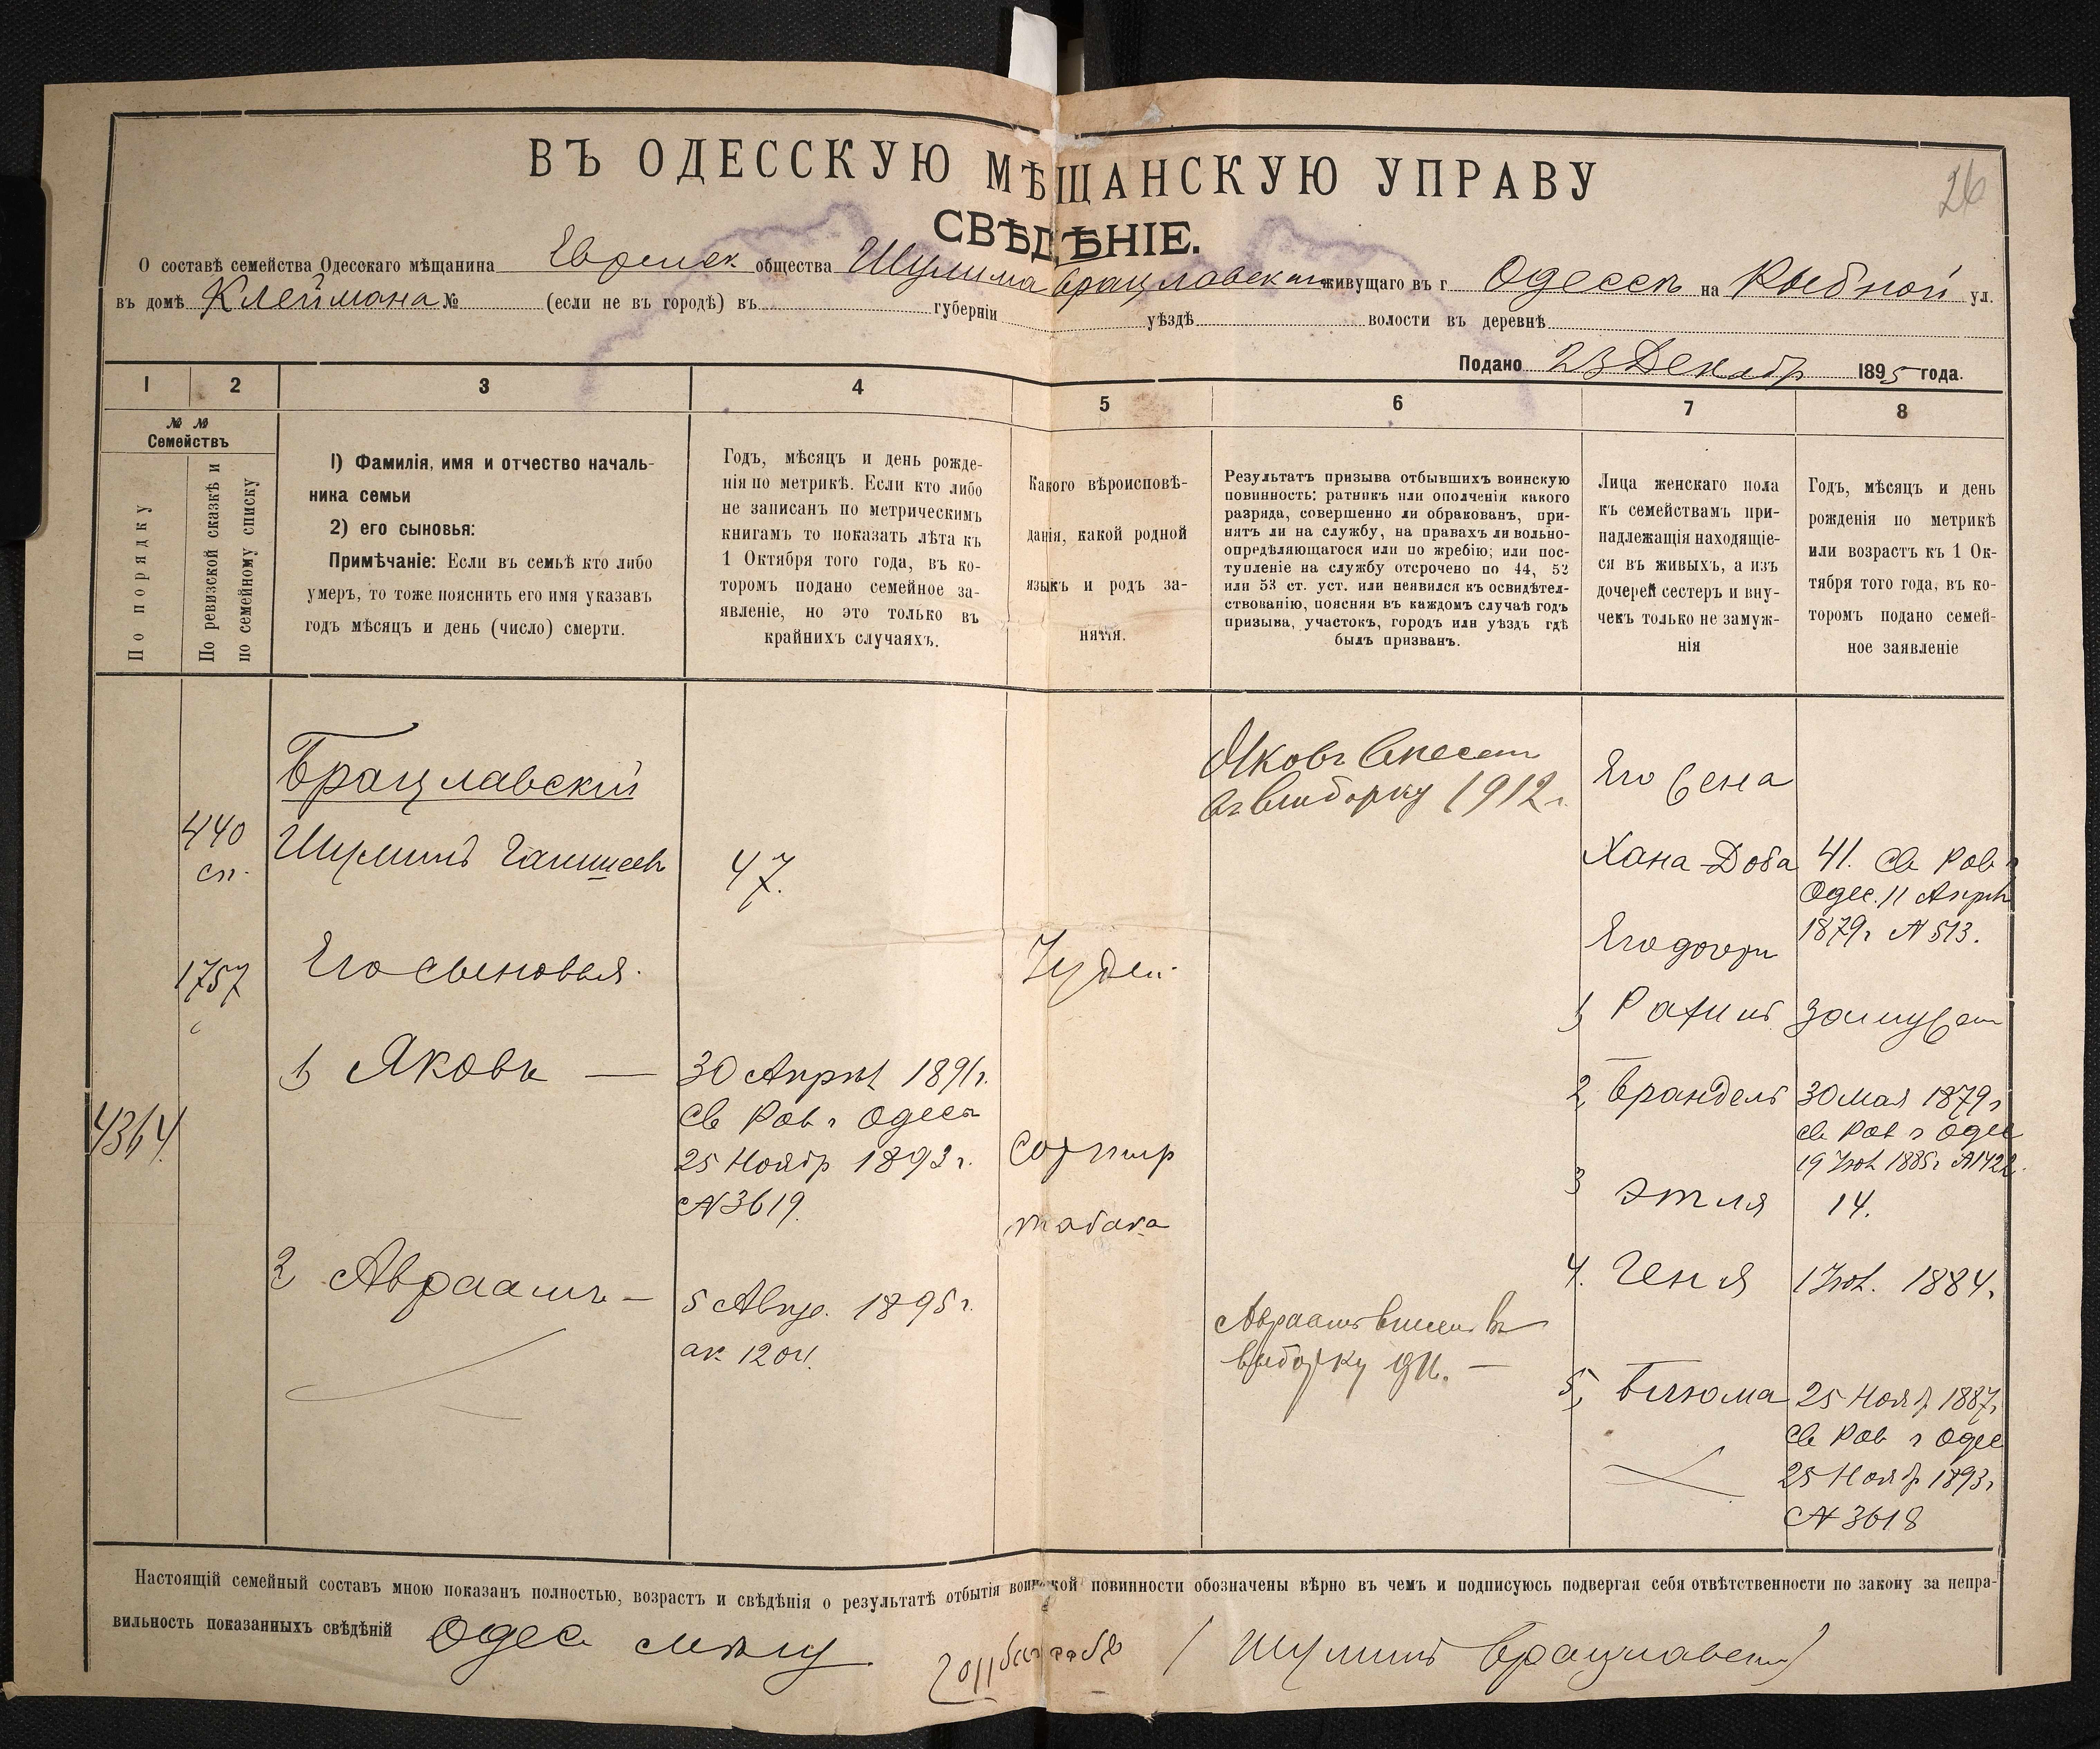 26
ВЪ ОДЕССКУЮ МѢЩАНСКУЮ УПРАВУ
СВѢДѢНІЕ.
О составѣ семейства Одесскаго мѣщанина Еврейск общества Шулима Брацлавскаго живущаго въ г Одессѣ на Рыбной ул.
въ домѣ Клеймана № (если не въ городѣ) въ губерніи уѣздѣ волости въ деревнѣ
Подано 23 Декабр 1895 года.
1 2 3 4 5 6 7 8
№ № Семействъ
По порядку
По ревизской сказкѣ и по семейному списку
1) Фамилія, имя и отчество началь-
ника семьи
2) его сыновья:
Примѣчаніе: Если въ семьѣ кто либо
умеръ, то тоже пояснить его имя указавъ
годъ мѣсяцъ и день (число) смерти.
Годъ, мѣсяцъ и день рожде-
нія по метрикѣ. Если кто либо
не записанъ по метрическимъ
книгамъ то показать лѣта къ
1 Октября того года, въ ко-
торомъ подано семейное за-
явленіе, но это только въ
крайнихъ случаяхъ.
Какого вѣроисповѣ-
данія, какой родной
языкъ и родъ за-
нятія.
Результатъ призыва отбывшихъ воинскую
повинность: ратникъ или ополченія какого
разряда, совершенно ли обракованъ, при-
нятъ ли на службу, на правахъ ли вольно-
опредѣляющагося или по жребію; или пос-
тупленіе на службу отсрочено по 44, 52
или 53 ст. уст. или неявился къ освидѣтел-
ствованію, поясняя въ каждомъ случаѣ годъ
призыва, участокъ, городъ или уѣздъ гдѣ
былъ призванъ.
Лица женскаго пола
къ семействамъ при-
надлежащія находящіе-
ся въ живыхъ, а изъ
дочерей сестеръ и вну-
чекъ только не замуж-
нія
Годъ, мѣсяцъ и день
рожденія по метрикѣ
или возрастъ къ 1 Ок-
тября того года, въ ко-
торомъ подано семей-
ное заявленіе
4364
440
сп.
1757
Брацлавскій
Шулимъ
Его сыновья
1 Яковъ —
2 Авраамъ —
47.
30 Апрѣл 1891 г.
Св Рав г Одес
25 Ноябр 1893 г.
№ 3619.
5 Авгу. 1895 г.
ак 1204.
Іудей
Сортир
табака
Яковъ Внесен
въ Выборку 1912 г.
Авраамъ внесен въ
выборку 911. —
Его жена
Хана Доба
Его дочери
1, Рахиль
2, Брандель
3 Этля
4. Геня
5, Блюма
41. Св Рав г
Одес. 11 Апрѣл
1879 г № 513.
Замужем
30 Мая 1879 г
Св Рав г Одес
19 Іюл 1885 г № 1422.
14.
1 Іюл. 1884.
25 Нояб 1887 г
Св Рав г Одес
25 Нояб 1893 г
№ 3618
Настоящій семейный составъ мною показанъ полностью, возрастъ и свѣдѣнія о результатѣ отбытія воинской повинности обозначены вѣрно въ чемъ и подписуюсь подвергая себя отвѣтственности по закону за непра-
вильность показанныхъ свѣдѣній Одес мѣщ
/ Шулимъ Брацлавскій /